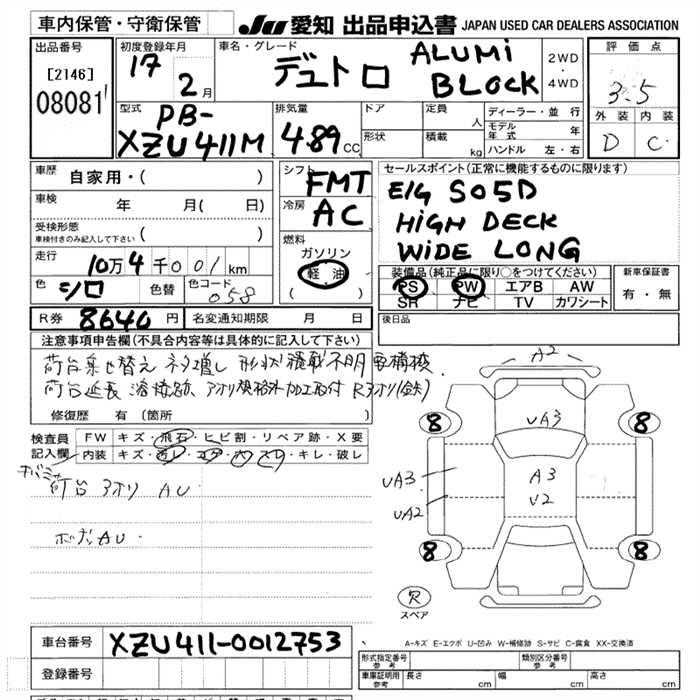 車内保管・守衛保管
JU 愛知 出品申込書 JAPAN USED CAR DEALERS ASSOCIATION
出品番号 [2146] 08081
初度登録年月 17 2 月
車名・グレード デュトロ ALUMi BLOCK
2WD ・ 4WD
評価点 3.5
外装 内装
D C
型式 PB-XZU411M
排気量 4.89 CC
ドア
形状
定員 人
積載 kg
ディーラー・並行
モデル年式 年
ハンドル 左・右
車歴 自家用・( )
車検 年 月( 日)
受検形態
車検付きのみ記入して下さい ( )
走行 10万4千001km
色 シロ 色替 色コード 058
シフト FMT
冷房 AC
燃料
ガソリン
軽油
( )
セールスポイント(正常に機能するものに限ります)
E/G S05D
HiGH DECK
WiDE LONG
装備品(純正品に限り○をつけてください)
PS PW エアB AW
SR ナビ TV カワシート
新車保証書
有・無
後日品
R券 8640 円 名変通知期限 月 日
注意事項申告欄(不具合内容等は具体的に記入して下さい)
荷台乗せ替え ネタ増し 形状 積載不明
荷台延長 溶接跡 加工取付
修復歴 有(箇所
検査員記入欄
FW キズ・飛石・ヒビ割・リペア跡・X要
内装 キズ・汚レ・コゲ・穴・スレ・キレ・破レ
荷台 アオリ AU
ボデーAU.
A2
8 8
UA3
A3
U2
UA3
UA2
8 8
スペア
A-キズ E-エクボ U-凹み W-補修跡 S-サビ C-腐食 XX-交換済
車台番号 XZU411-0012753
登録番号
形式指定番号 参考
類別区分番号 参考
車庫証明用 参考 長さ cm 幅 cm 高さ cm